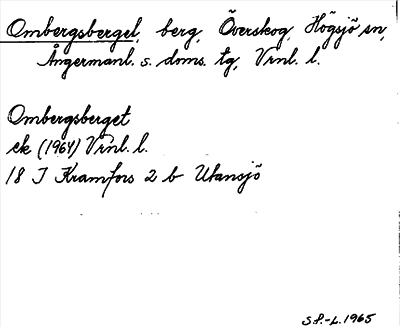 Ombergsberget, berg, Överskog, Högsjö sn,
Ångermanl. s. doms. tg, Vrnl. l.
Ombergsberget
ek (1964) Vrnl. l.
18 J Kramfors 2 b Utansjö
S.P.-L. 1965